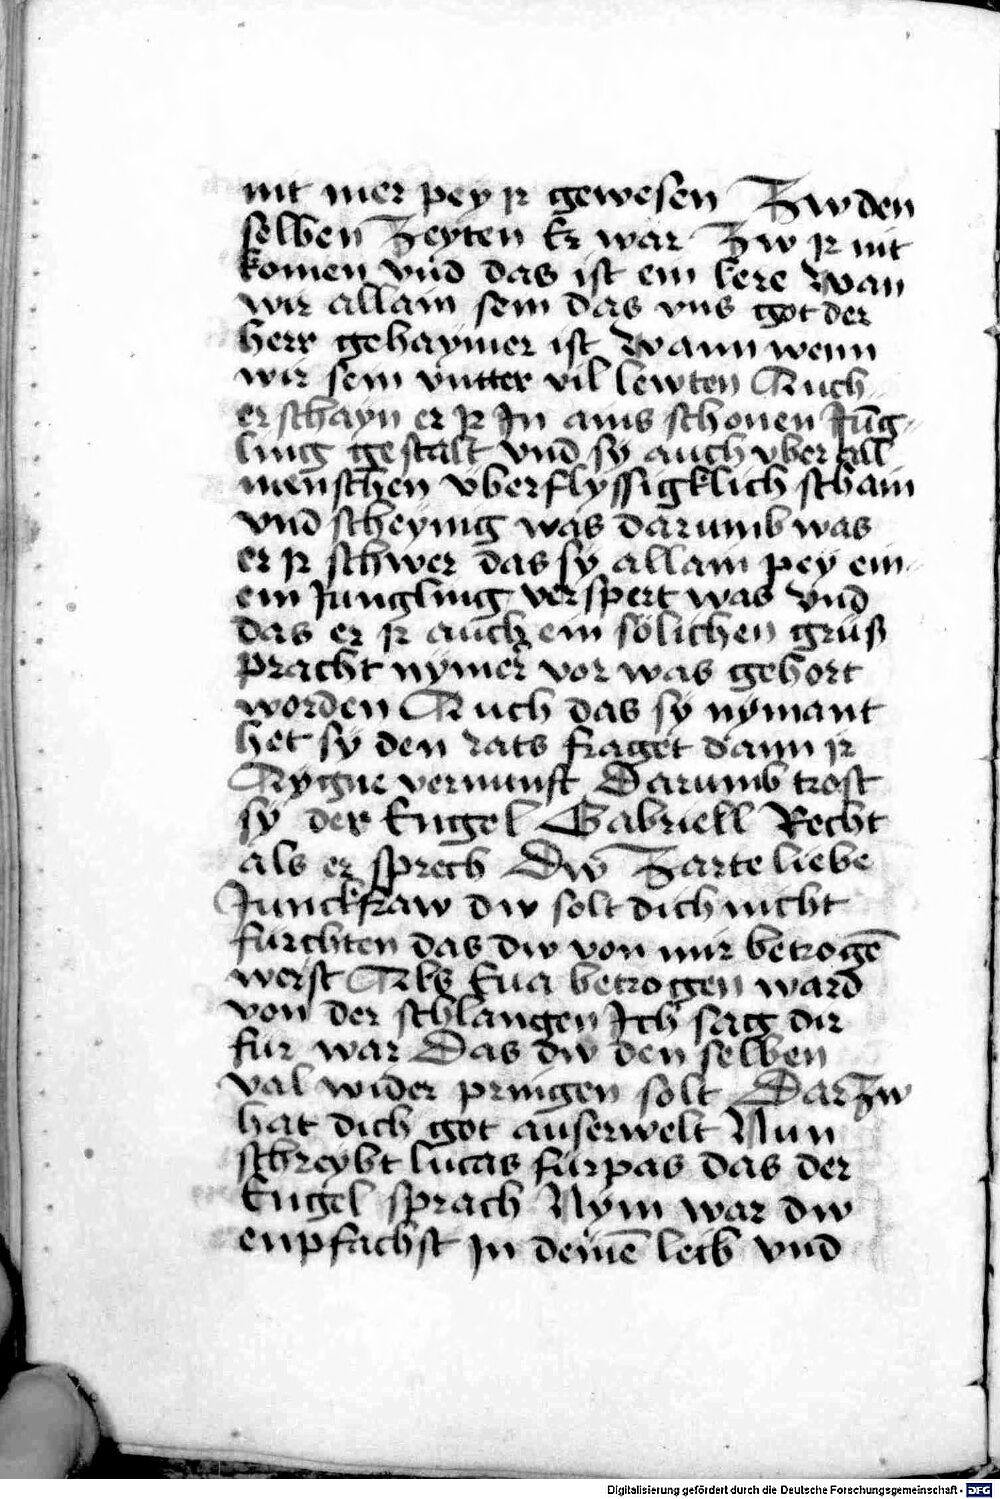 nit mer pey jr gewesen Zw den
selben Zeyten Er war Zw jr nit
komen vnd das ist ein lere Wan
wir allain sein das vns got der
herr gehaymer ist Wann wenn
wir sein vntter vil lewten Auch
er schayn er jr Jn ains schonen Jūg-
ling gestalt vnd sy auch vber all
menschen vberflyssigklich schain
vnd scheynig was darumb was
er jr schwer das sy allain pey ein-
em Jungling verspert was vnd
das er jr auch ein sölichen grüß
pracht nymer vor was gehort
worden Auch das sy nymant
het sy den rats fraget dann jr
Aygne vernunft Darumb trost
sy der Engel Gabriell Recht
als er sprech Dw Zarte liebe
Junckfraw dw solt dich nicht
furchten das dw von mir betrogē
werst Als Eua betrogen ward
von der schlangen Ich sag dir
fur war Das dw den selben
val wider pringen solt Dar Zw
hat dich got auserwelt Nun
schreybt lucas furpas das der
Engel sprach Nym war dw
enpfachst Jn deinē leib vnd
Digitalisierung gefördert durch die Deutsche Forschungsgemeinschaft - DFG